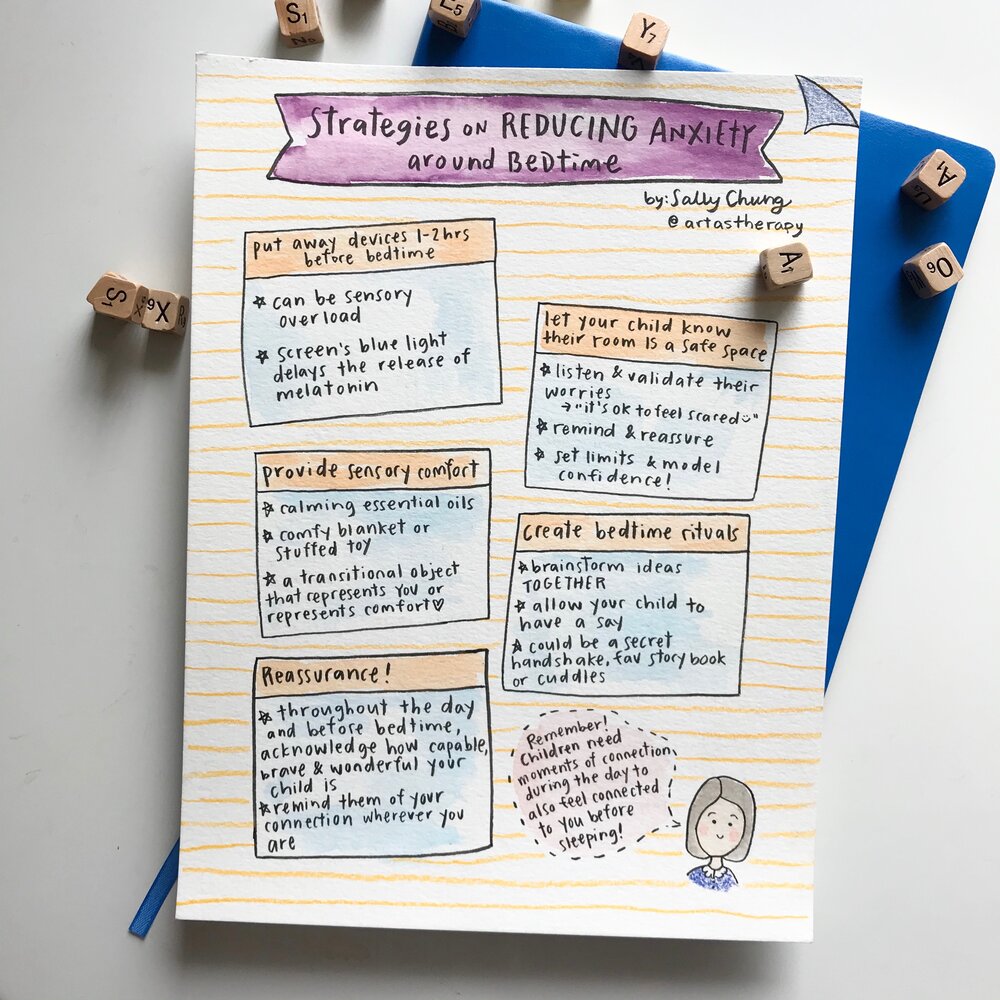 Strategies on REDUCING ANXIETY
around BEDtime
by: Sally Chung
@artastherapy
put away devices 1-2hrs
before bedtime
☆ can be sensory
overload
☆ screen's blue light
delays the release of
melatonin
let your child know
their room is a safe space
☆ listen & validate their
worries
→ "it's ok to feel scared"
☆ remind & reassure
☆ set limits & model
confidence!
provide sensory comfort
☆ calming essential oils
☆ comfy blanket or
stuffed toy
☆ a transitional object
that represents you or
represents comfort♡
create bedtime rituals
☆ brainstorm ideas
TOGETHER
☆ allow your child to
have a say
☆ could be a secret
handshake, fav story book
or cuddles
Reassurance!
☆ throughout the day
and before bedtime,
acknowledge how capable,
brave & wonderful your
child is
☆ remind them of your
connection wherever you
are
Remember!
Children need
moments of connection
during the day to
also feel connected
to you before
sleeping!
S1
Y7
A1
A1
O6
S1
X6